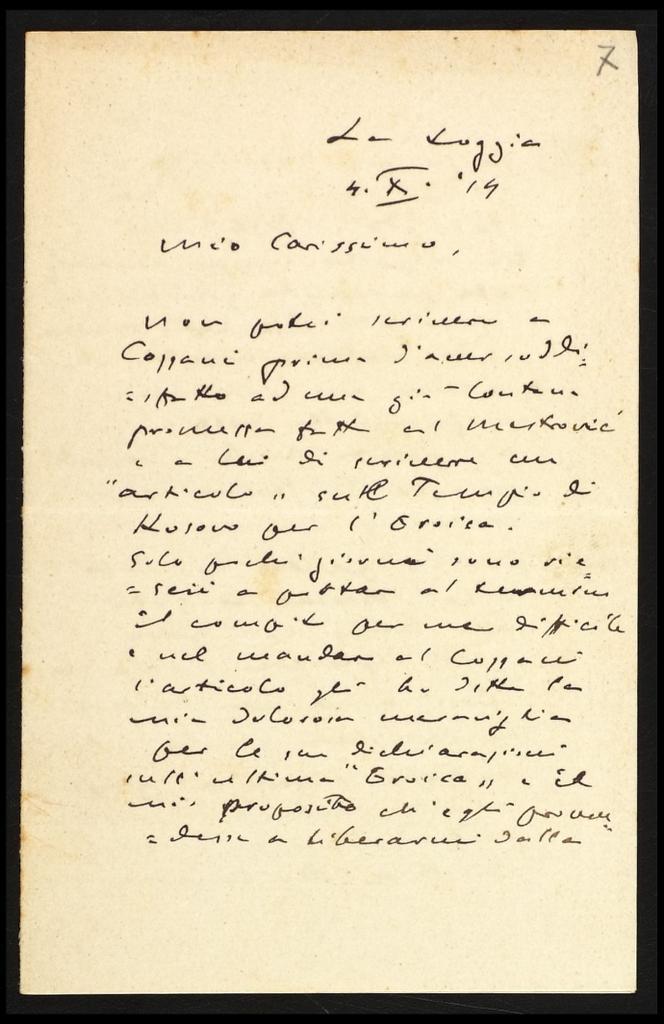 7
La Loggia
4. X. '14
Mio Carissimo,
Non potei scrivere a
Cozzani prima d'aver soddi=
=sfatto ad una già lontana
promessa fatta al Mestrovic
e a lui di scrivere un
"articolo" sul Tempio di
Kosovo per l'Eroica.
Solo pochi giorni sono rie=
=scii a portar al termine
il compito per me difficile
e nel mandar al Cozzani
l'articolo gli ho detto la
mia dolorosa meraviglia
per le sue dichiarazioni
sull'ultima "Eroica" e il
mio proposito ch'egli provve=
=desse a liberarmi dalla